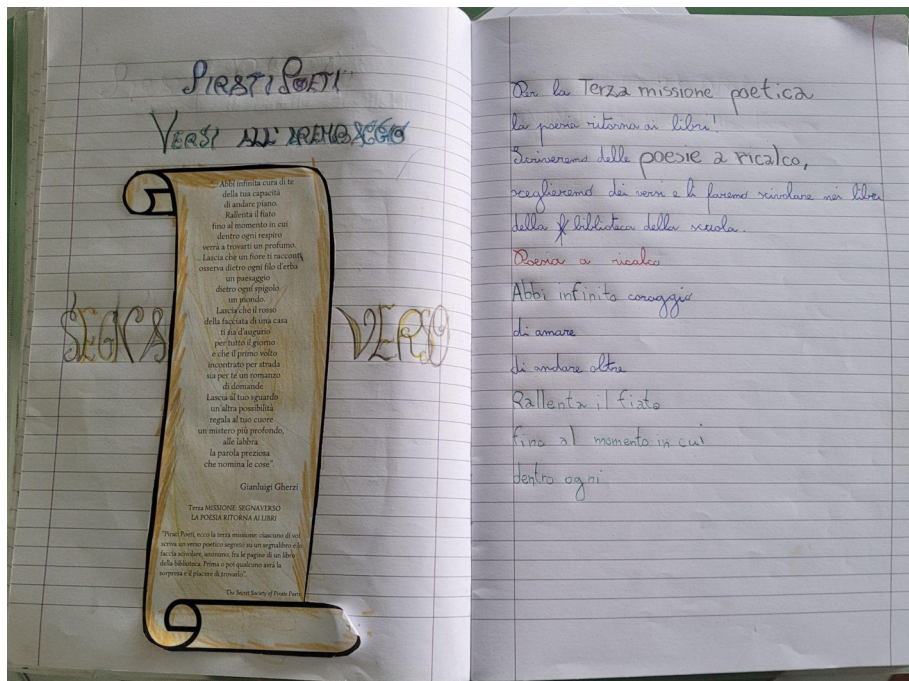 PIRATI POETI
VERSI ALL'ARREMBAGGIO
SEGNA VERSO
"... Abbi infinita cura di te
della tua capacità
di andare piano.
Rallenta il fiato
fino al momento in cui
dentro ogni respiro
verrà a trovarti un profumo.
Lascia che un fiore ti racconti,
osserva dietro ogni filo d'erba
un paesaggio
dietro ogni spigolo
un mondo.
Lascia che il rosso
della facciata di una casa
ti sia d'augurio
per tutto il giorno
e che il primo volto
incontrato per strada
sia per te un romanzo
di domande
Lascia al tuo sguardo
un'altra possibilità
regala al tuo cuore
un mistero più profondo,
alle labbra
la parola preziosa
che nomina le cose"
Gianluigi Gherzi
Terza MISSIONE: SEGNAVERSO
LA POESIA RITORNA AI LIBRI
"Pirati Poeti, ecco la terza missione: ciascuno di voi
scriva un verso poetico segreto su un segnalibro e lo
faccia scivolare, anonimo, fra le pagine di un libro
della biblioteca. Prima o poi qualcuno avrà la
sorpresa e il piacere di trovarlo".
The Secret Society of Pirate Poets
Per la Terza missione poetica
la poesia ritorna ai libri!
Scriveremo delle poesie a ricalco,
sceglieremo dei versi e li faremo scivolare nei libri
della biblioteca della scuola.
Poesia a ricalco
Abbi infinito coraggio
di amare
di andare oltre
Rallenta il fiato
fino al momento in cui
dentro ogni